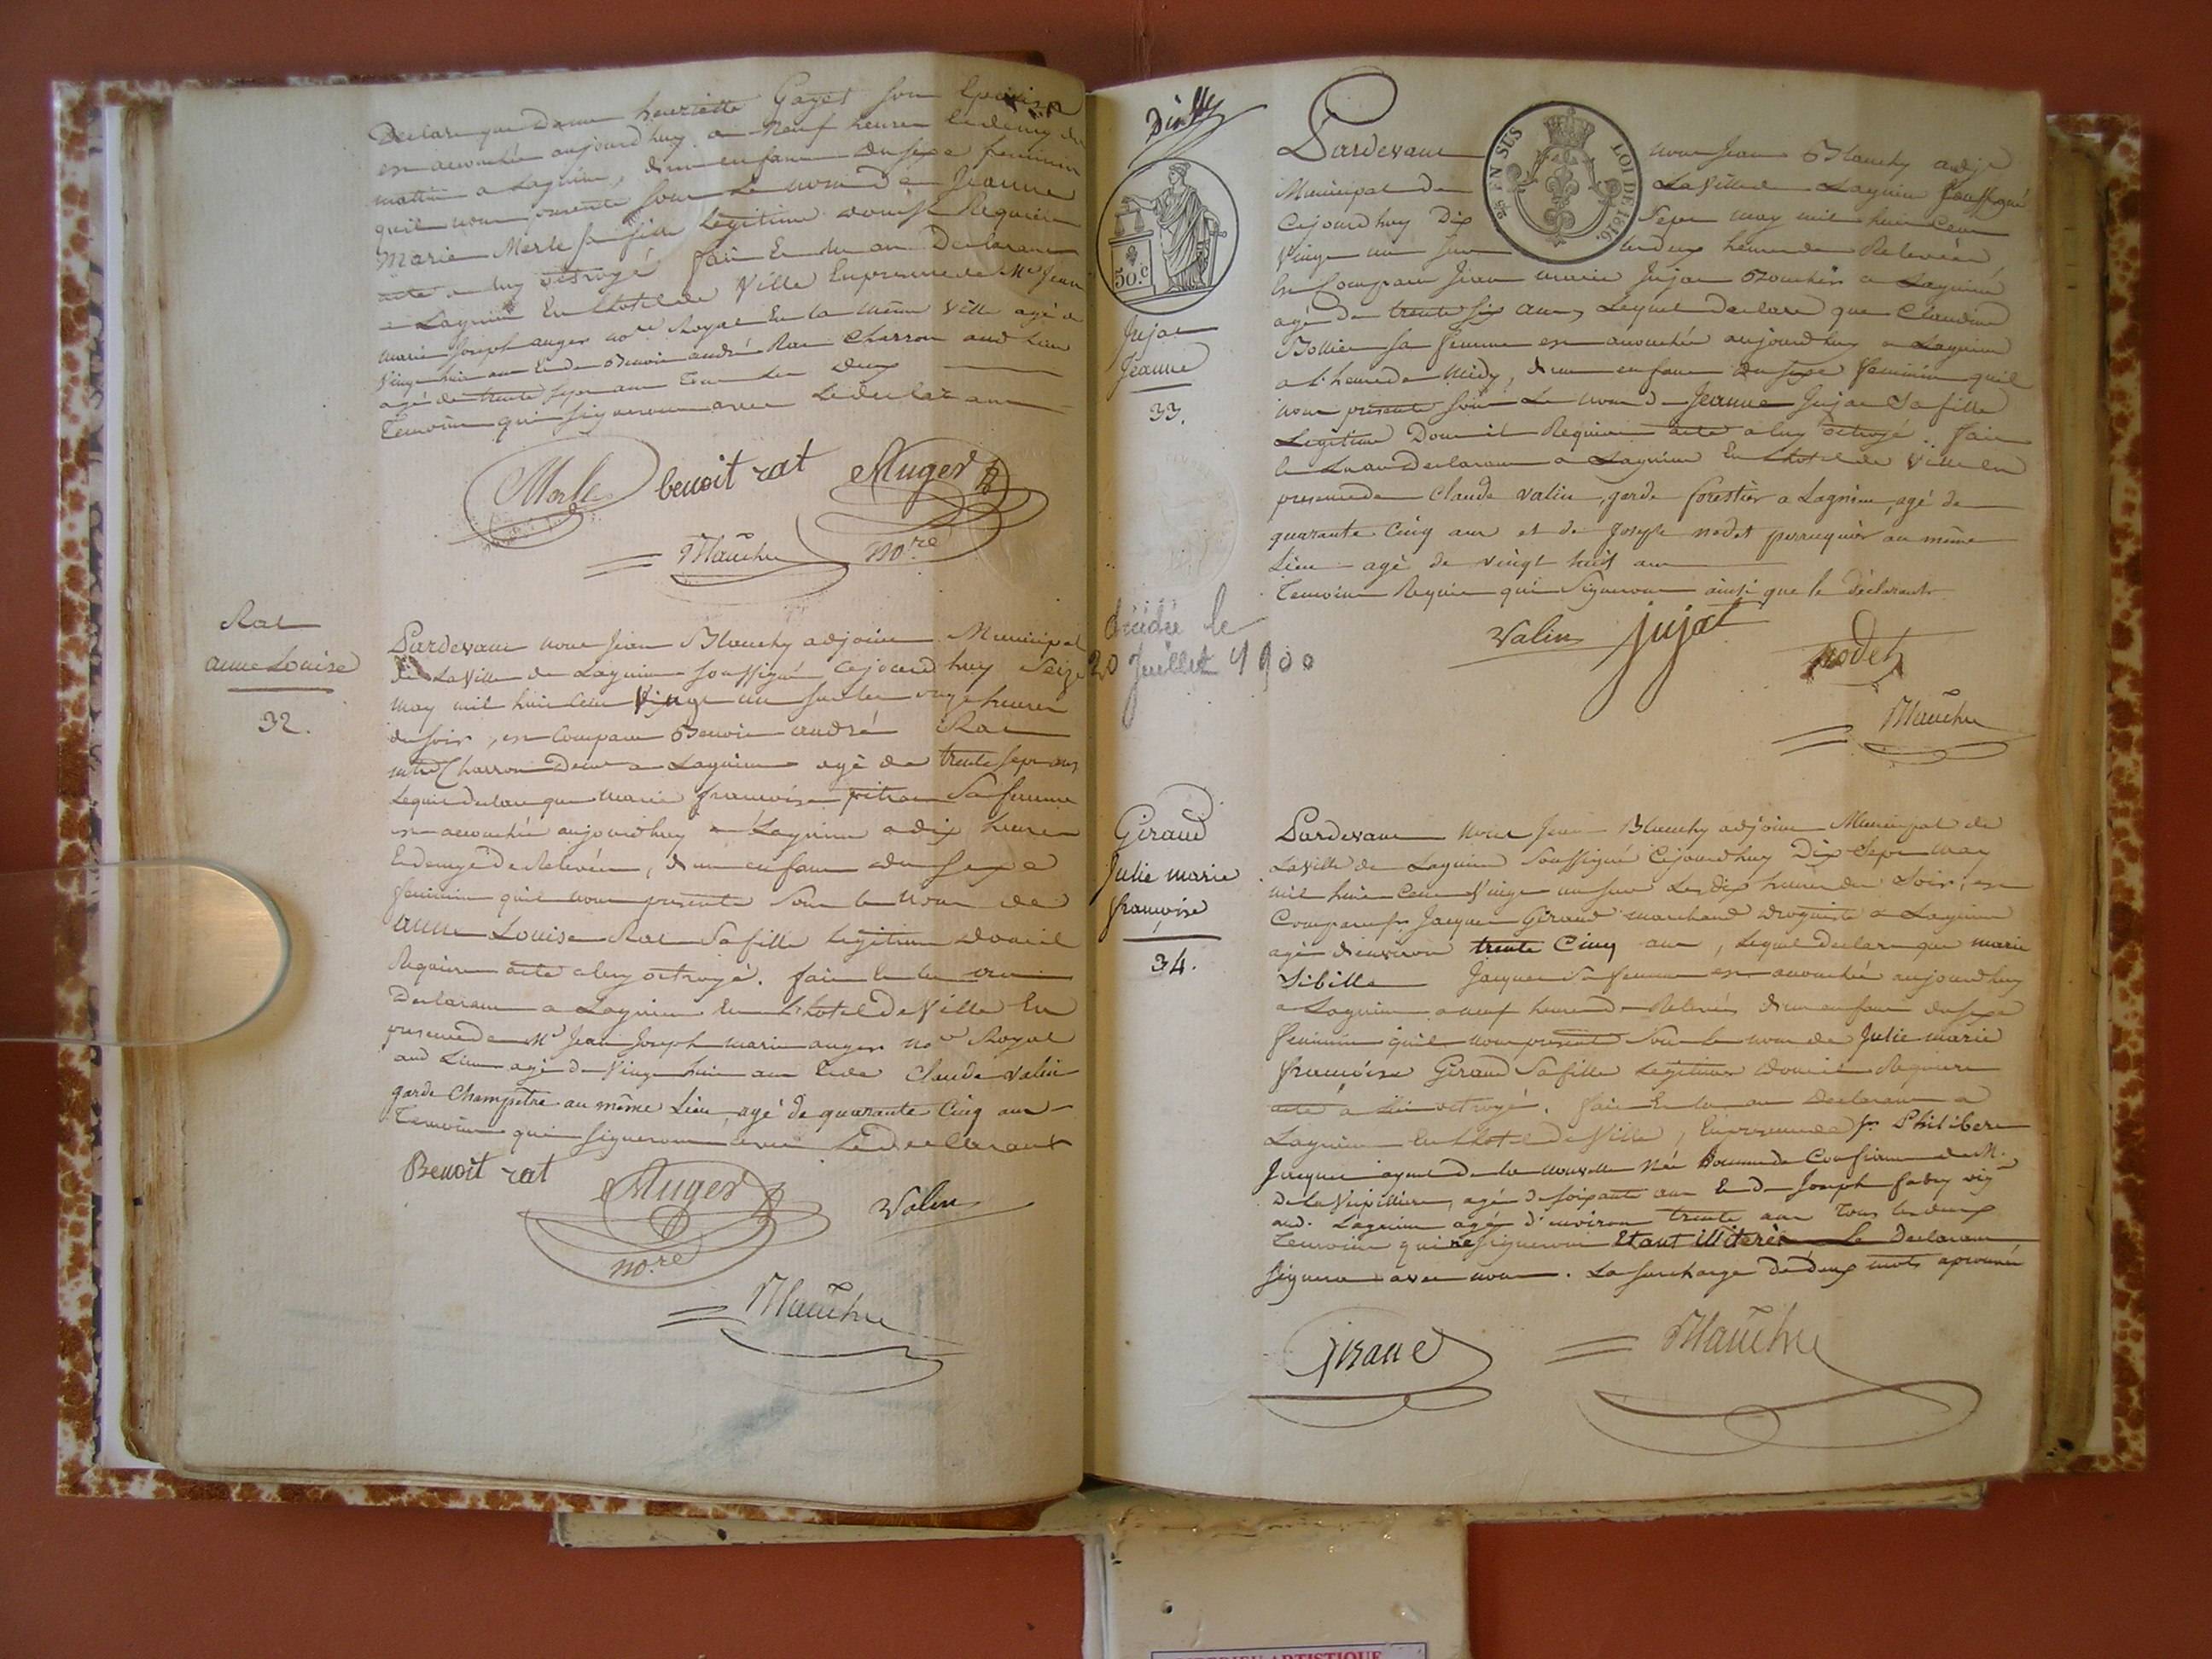 Declare que Dame henriette Gayet son Epouse
est accouchée aujourdhuy a Neuf heures Et demy du
mattin a Lagnieu, d'un enfant du sexe feminin
qu'il nous presente sous Le nom de Jeanne
Marie Merle sa fille Legitime dont il Requiert
acte a luy octroyé fait Et lu au Declarant
a Lagnieu En L'hotel de Ville En presence de Mr Jean
marie Joseph auger no.re Royal En la même Ville agé de
Vingt huit ans Et de Benoit andré Rat Charron aud Lieu
agé de trente sept ans Tous Les Deux
Temoins qui signeront avec Le declarant
Merle benoit rat Auger
no.re
Blanchy
Rat
anne Louise
32.
Pardevant nous Jean Blanchy adjoint Municipal
de La Ville de Lagnieu soussigné Cejourd huy Seize
may mil huit Cent Vingt un sur les onze heures
du soir, est Comparu Benoit andré Rat
Charron Demt a Lagnieu agé de trente sept ans
Lequel declare que Marie francoise pitrat Sa femme
est accouchée aujourdhuy a Lagnieu a dix heures
Et demye De Relevée, d'un enfant du sexe
feminin qu'il nous presente Sous le Nom de
anne Louise Rat Sa fille Legitime dont il
Requiert acte a luy octroyé. fait Et lu au
Declarant a Lagnieu En L'hotel De Ville En
presence de Mr Jean Joseph marie auger no.re Royal
aud Lieu agé de Vingt huit ans Et de Claude Valin
garde Champêtre au même Lieu, agé de quarante Cinq ans
Temoins qui signeront avec Le Declarant
Benoit rat Auger Valin
no.re
Blanchy
Dix 7
50.c
25.c EN SUS LOI DE 1816.
Jujat
Jeanne
33.
Pardevant nous Jean Blanchy adjt
Municipal de La Ville de Lagnieu soussigné
Cejourdhuy Dix Sept may mil huit Cent
Vingt un sur les deux heures de Relevée
Est Comparu Jean marie Jujat Boucher a Lagnieu
agé de trente six ans, Lequel declare que Claudine
Bollier sa femme est accouchée aujourdhuy a Lagnieu
a l'heure de Midy, d'un enfant du sexe feminin qu'il
nous presente sous Le nom de Jeanne Jujat Sa fille
Legitime Dont il Requiert acte a luy octroyé. fait
Et Lu au Declarant a Lagnieu En L'hotel de Ville En
presence de Claude Valin, garde forestier a Lagnieu, agé de
quarante Cinq ans et de Joseph nodet perruquier au même
Lieu agé de vingt huit ans
Temoins Requis qui Signeront ainsi que le déclarant
Valin jujat nodet
Blanchy
décédée le
20 Juillet 1900
Giraud
Julie marie
francoise
34.
Pardevant Nous Jean Blanchy adjoint Municipal de
La Ville de Lagnieu Soussigné Cejourdhuy Dix Sept May
mil huit Cent Vingt un sur Les dix heures du Soir, est
Comparu sr. Jacques Giraud marchand droguiste a Lagnieu
agé d'environ trente Cinq ans, Lequel declare que marie
Sibille Jacquet Sa femme est accouchée aujourdhuy
a Lagnieu a neuf heures de Relevée d'un enfant du sexe
feminin qu'il nous presente Sous le nom de Julie marie
francoise Giraud Sa fille Legitime dont il Requiert
acte a lui octroyé. fait Et lu au Declarant a
Lagnieu En L'hotel De Ville, En presence de sr. Philibert
Jacquet ayeul de la nouvelle née homme de Confiance de M.
De la Verpilliere, agé de soixante ans Et de Joseph fabry vig.on
aud. Lagnieu agé d'environ trente ans Tous les deux
Temoins qui ne signeront Etant illiterés Le Declarant
signera avec nous. La surcharge de deux mots aprouvée
Giraud Blanchy